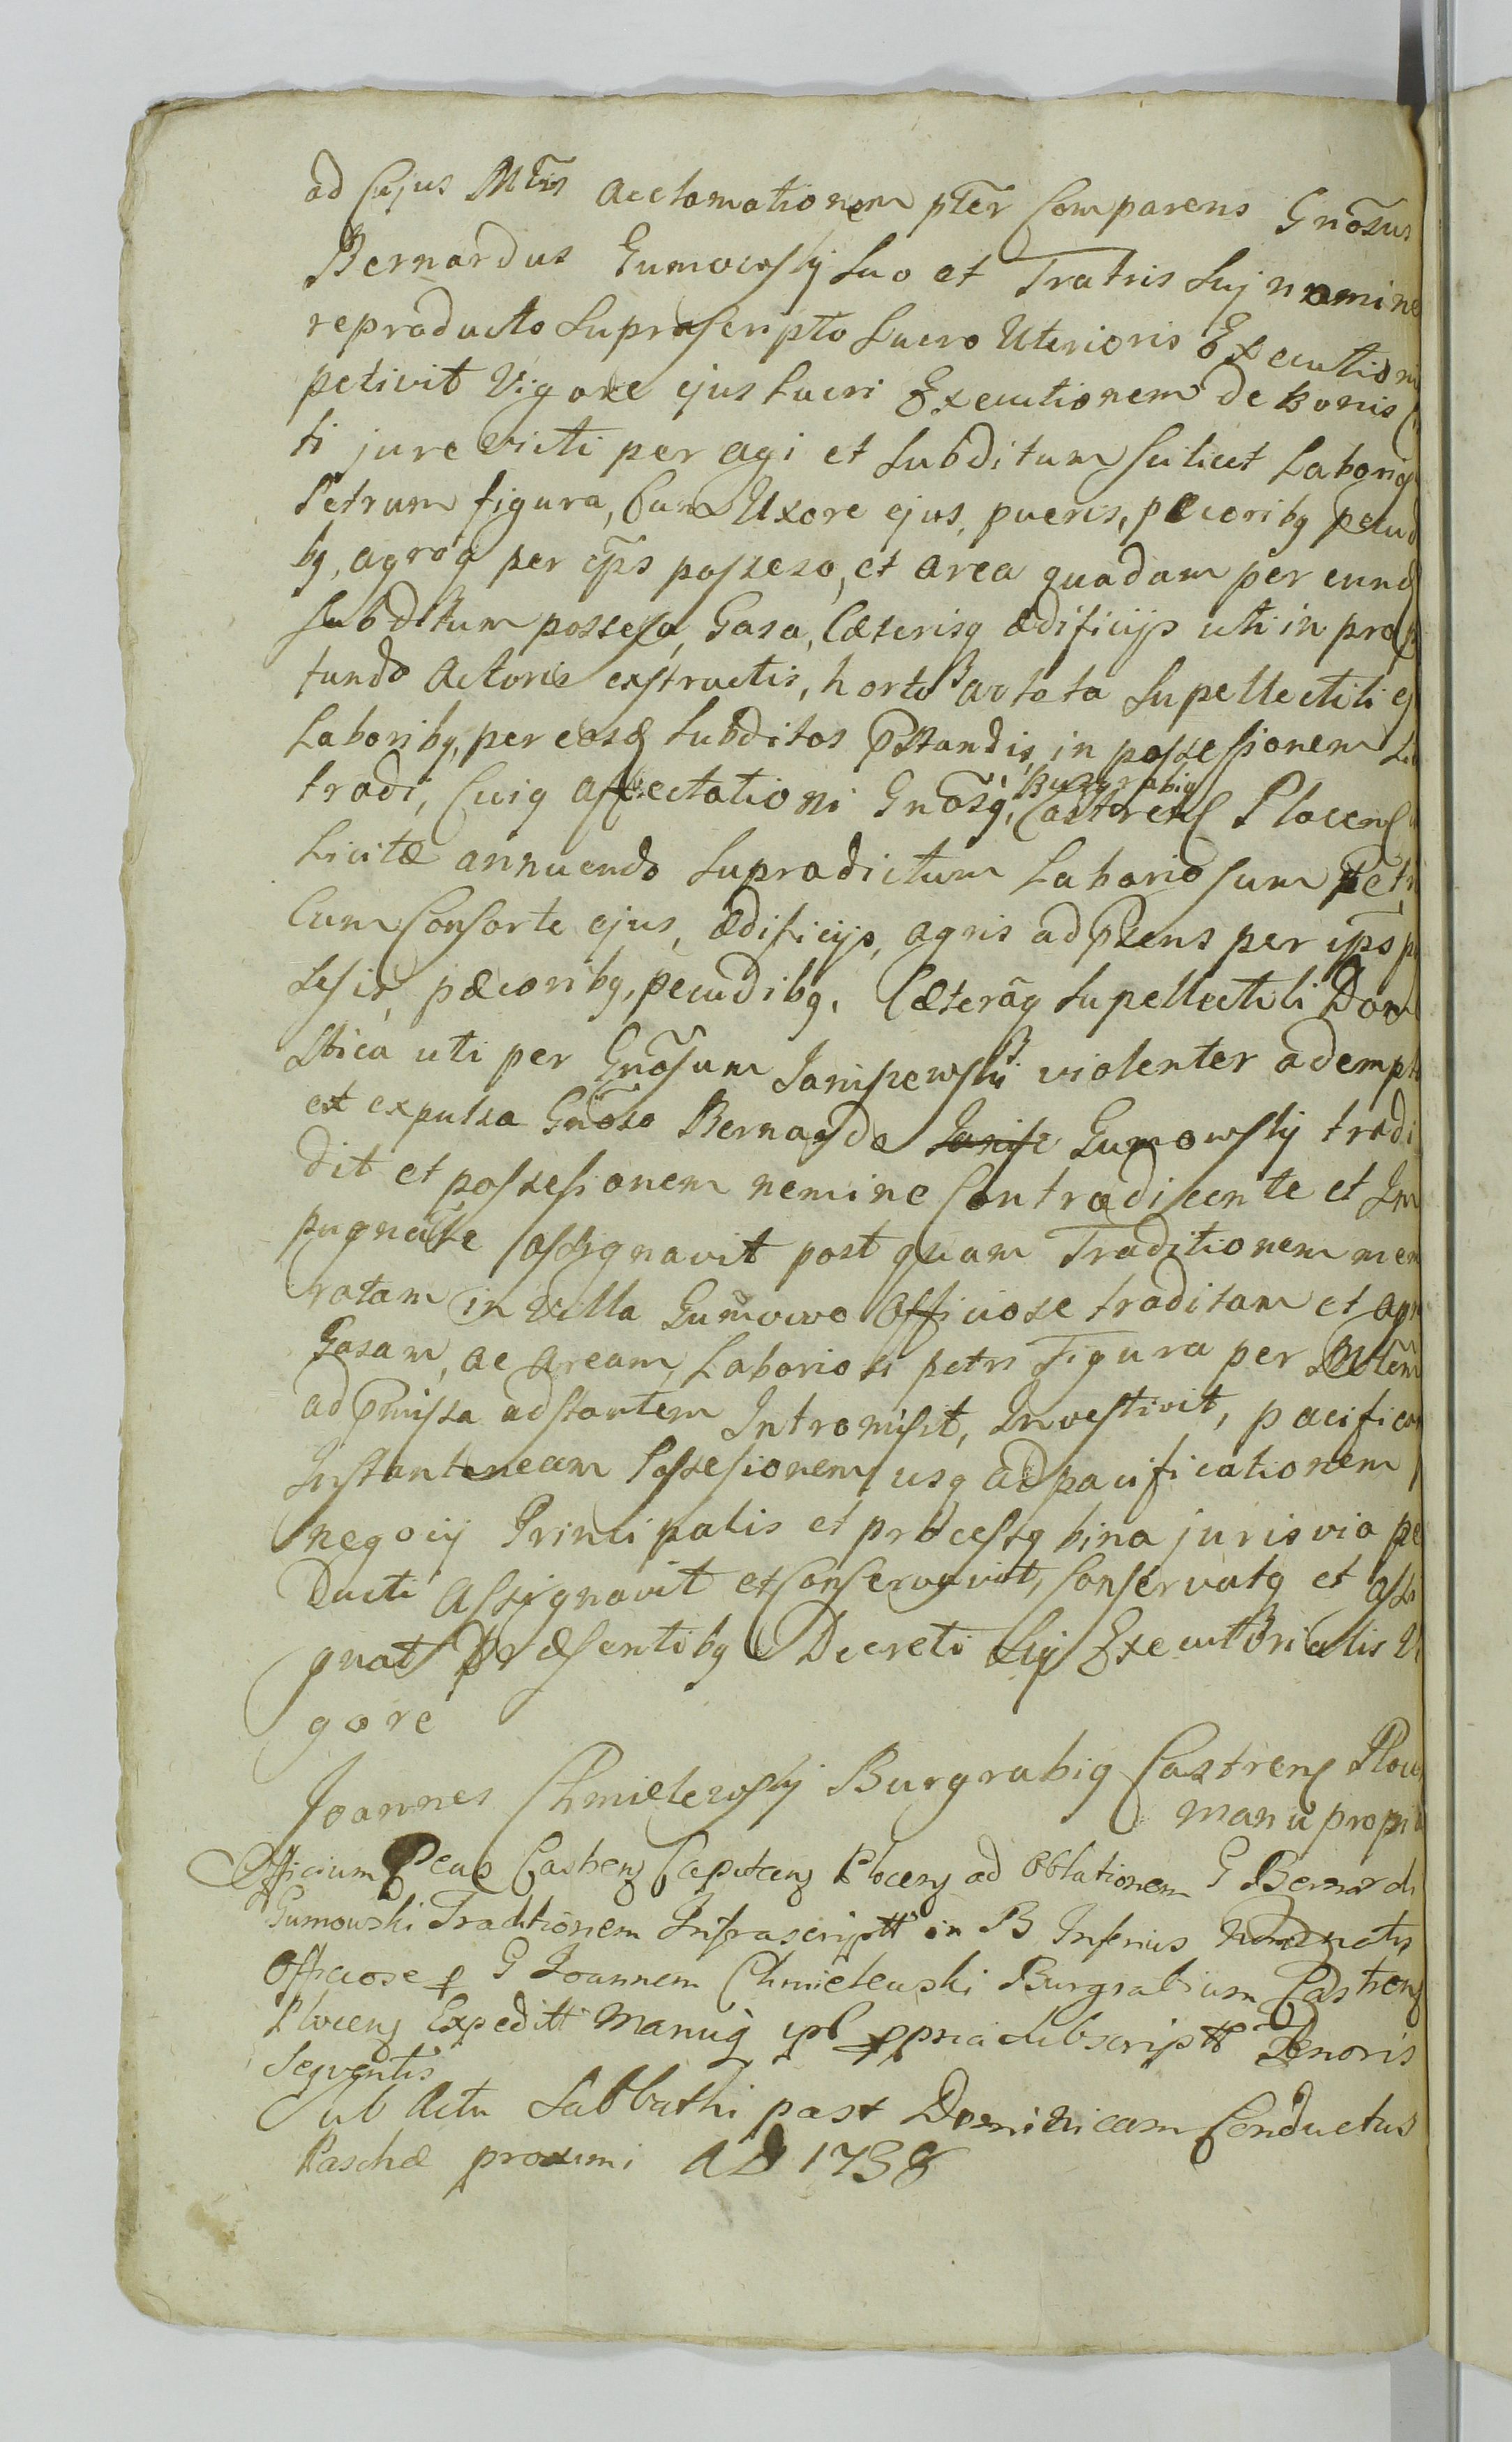 ad Cujus Mtris acclamationem pter Comparens Gnosus
Bernardus Gumowsky Suo et Fratris Suj nomine
reproducto Suprascripto Lucro Ulerioris Executioni
petivit Vigore ejus Lucri Executionem de Bonis
ti jure victi per agi et Subditum scilicet Laborioſ
Petrum figura, Cum Uxore ejus, pueris, pecoribq pecud
bq, agroq per ips posseso, et area quadam per eund
Subditum possessa, Gasa, Cæterisq ædificijs uti in prof
fundo Actoris exstructis, horto ac tota Supellectili ej
Laboribq, per eosd Subditos pstandis, in possesionem
tradi, Cuiq affectationi Gnosq, Burgrabiq Castrens Plocens
Licitæ annuendo Supradictum Laboriosum Petr
Cum Consorte ejus, ædificijs, agris ad psens per ips po
sesis, pæcoribq, pecudibq, Cæteraq Supellectili Dom
stica uti per Gnosum Janiszewski violenter adempta
et expulsa Gnoso Bernardo Janisz Gumowsky tradi
dit et possesionem nemine Contradicente et Im
pugnante assignavit post quam Traditionem mem
ratam in villa Gumowo officiose traditam et agr
Gasam, ac Aream, Laboriosi petri Figura per Mtem
ad pmissa adstantem Intromisit, Investivit, pacificam
Instantaneam Possesionem usq ad pacificationem
negocij Principalis et processq bina juris via pe
ducti Assignavit et Conservavit, Conservatq et assi
gnat Præsentibq Decreti Suj Executorialis Vi
gore
Joannes Chmielewsky Burgrabiq Castrens Ploce
manu propria
Officium Pens Castrens Capitans Plocens ad Oblationem G Bernardi
Gumowski Traditionem Infrascriptt in B Inferius
Officiose p G Joannem Chmielewski Burgrabium Castrens
Plocens Expeditt Manuq ipl ppria Subscriptt Tenoris
Sequentis
Sub Actu Sabbathi post Dominicam Conductus
Paschæ proximi AD 1738